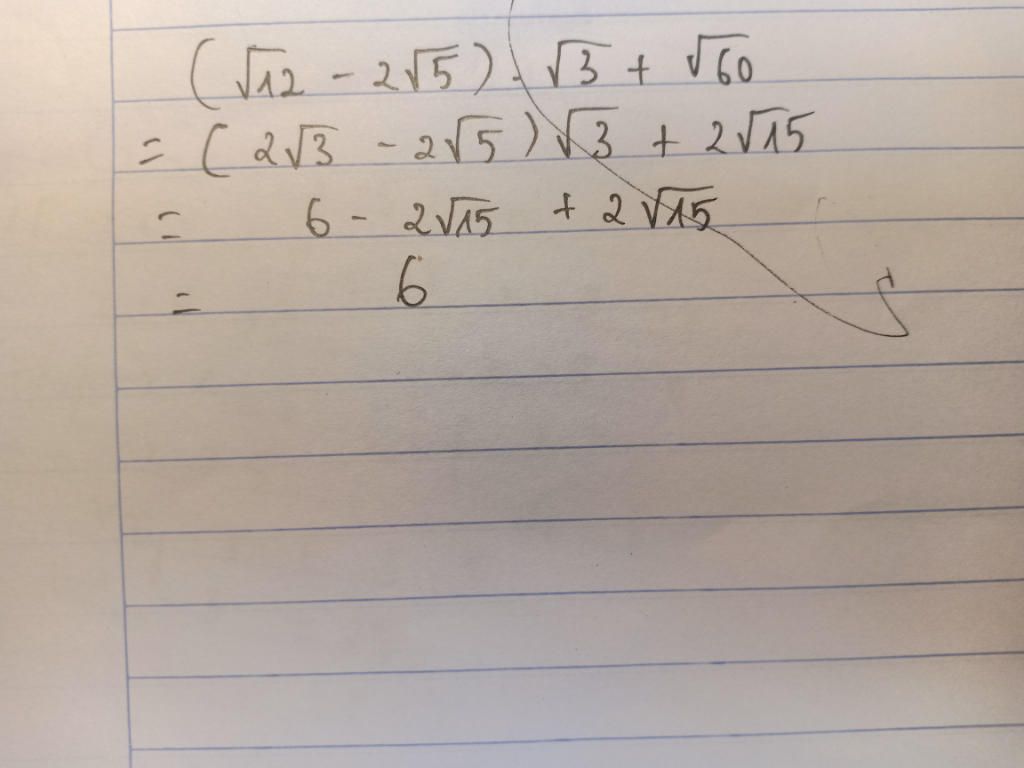 (√12 - 2√5) . √3 + √60
= (2√3 - 2√5) √3 + 2√15
= 6 - 2√15 + 2√15
= 6